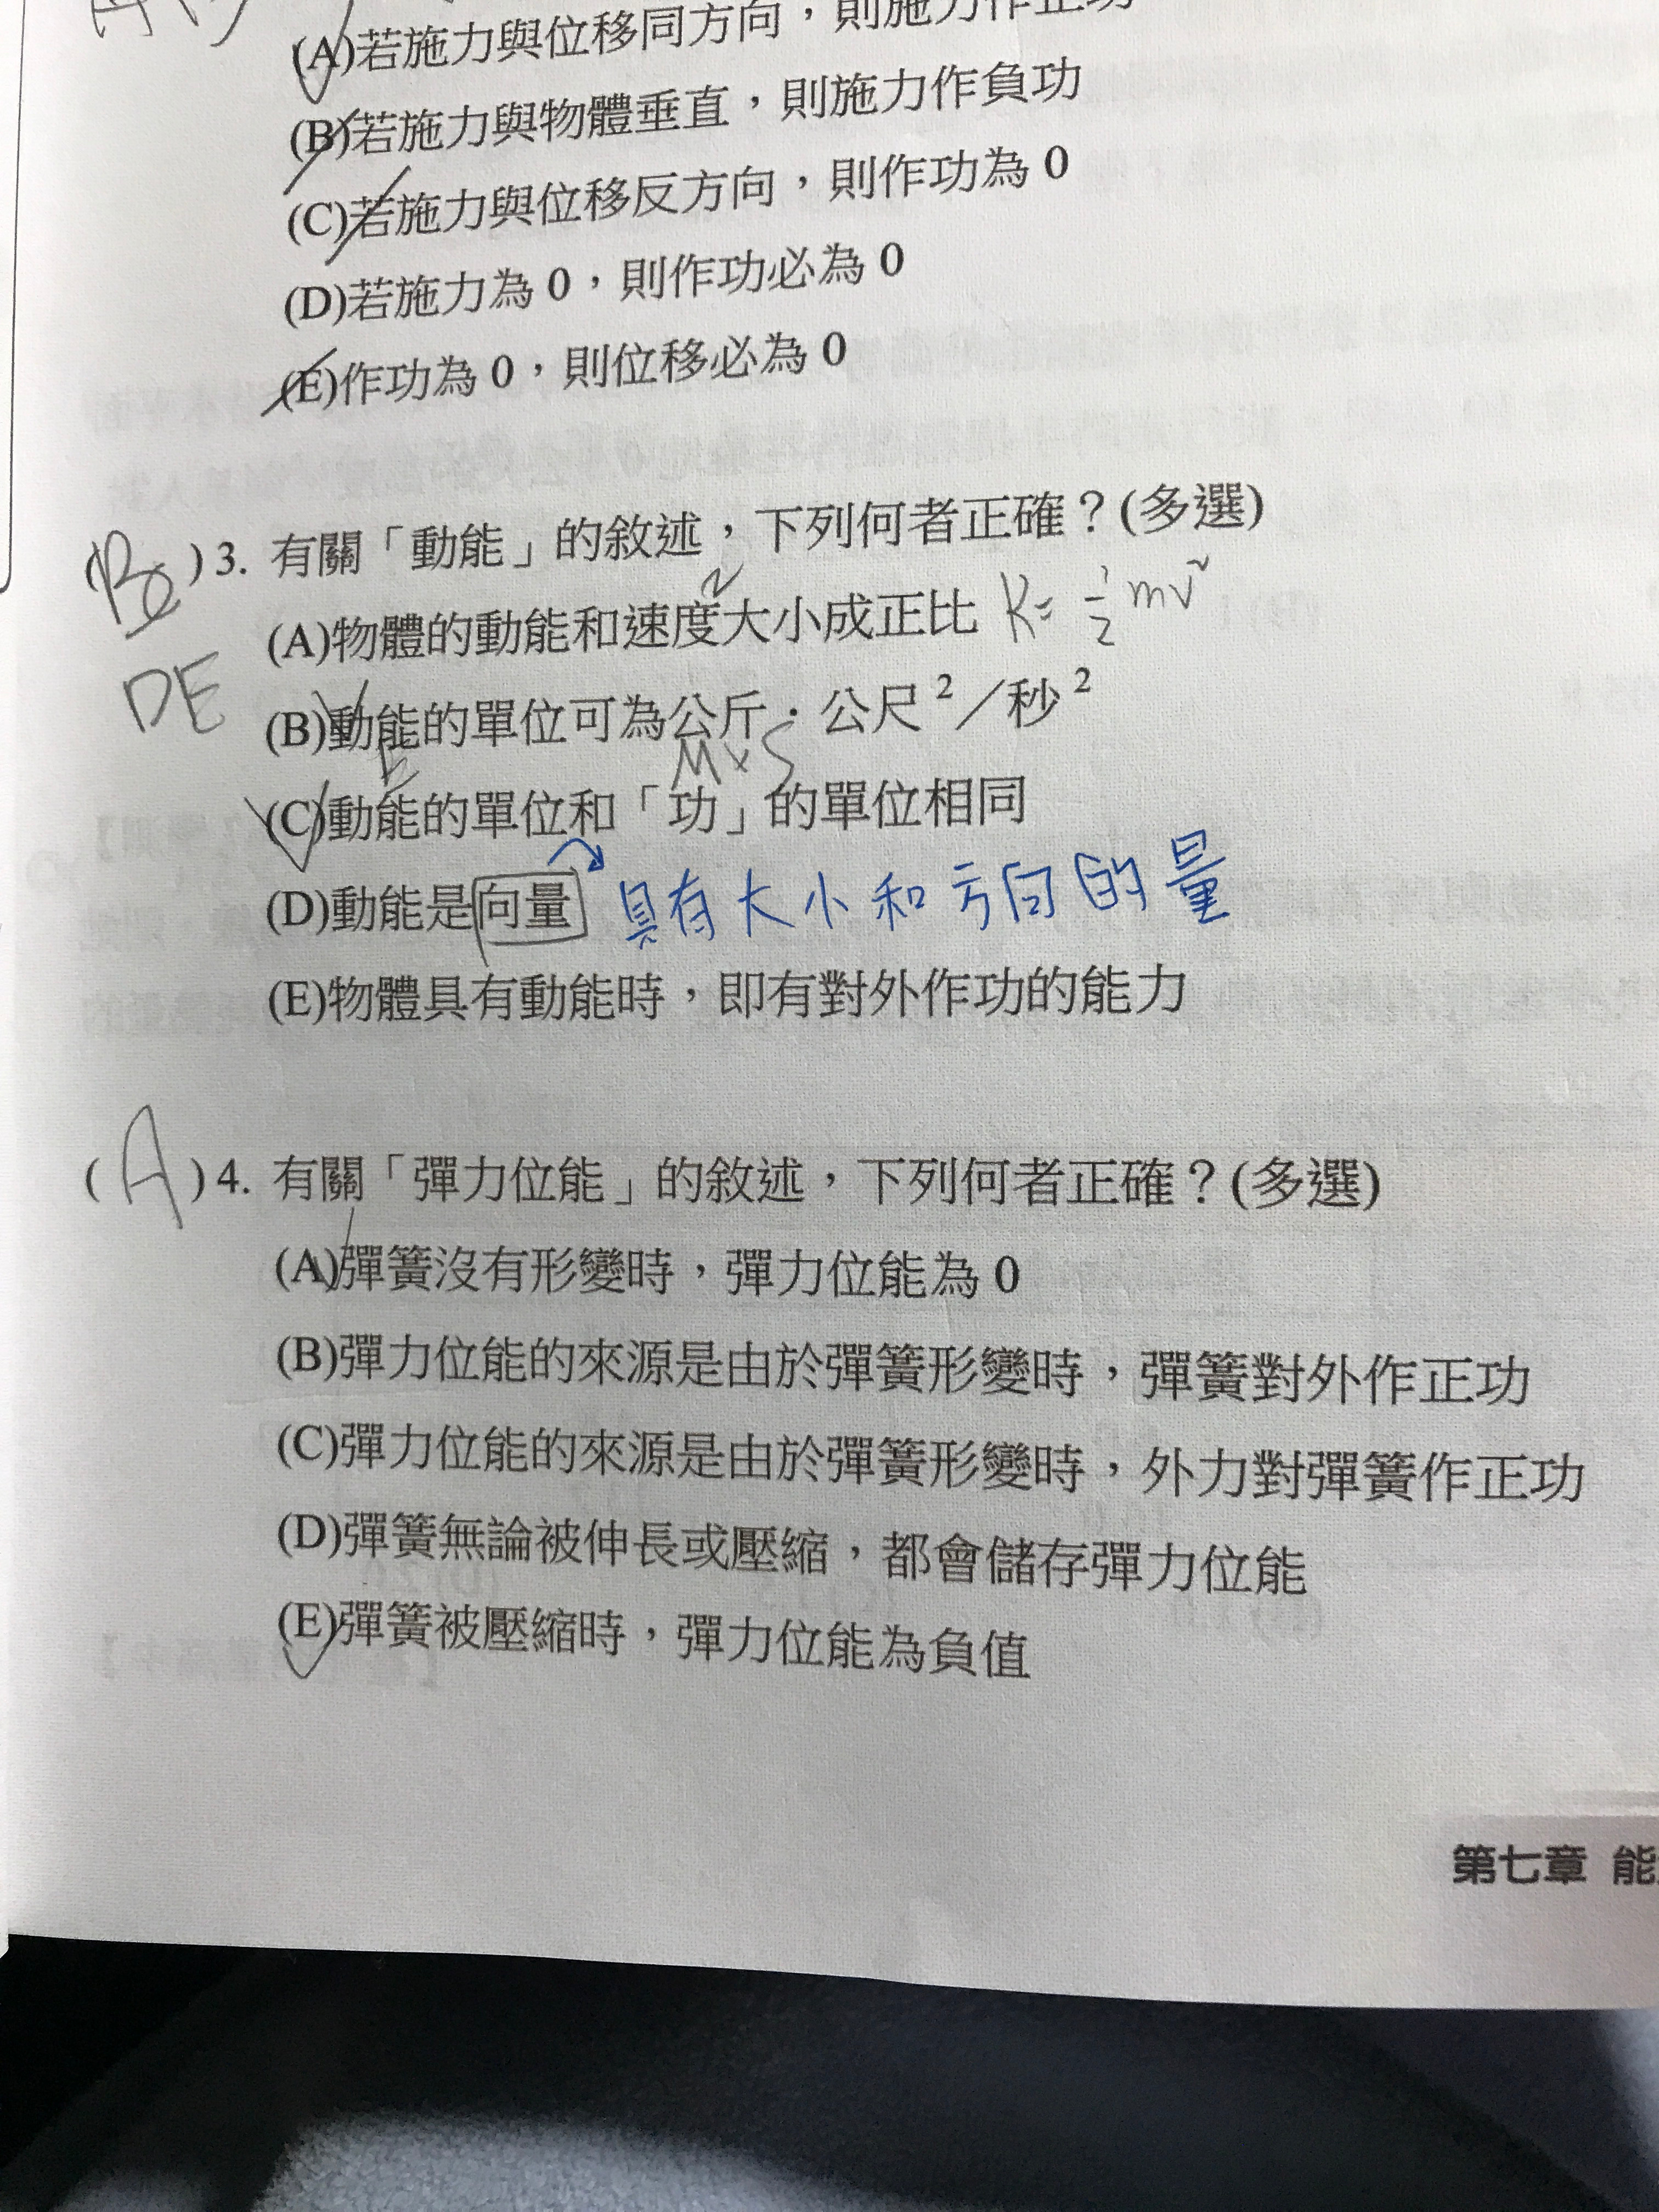 (A)若施力與位移同方向，則施力作正功
(B)若施力與物體垂直，則施力作負功
(C)若施力與位移反方向，則作功為 0
(D)若施力為 0，則作功必為 0
(E)作功為 0，則位移必為 0
( )3. 有關「動能」的敘述，下列何者正確？(多選)
2
(A)物體的動能和速度大小成正比 K= 1/2 mv²
DE
(B)動能的單位可為公斤．公尺²／秒²
(C)動能的單位和「功」的單位相同
(D)動能是向量 具有大小和方向的量
(E)物體具有動能時，即有對外作功的能力
(A)4. 有關「彈力位能」的敘述，下列何者正確？(多選)
(A)彈簧沒有形變時，彈力位能為 0
(B)彈力位能的來源是由於彈簧形變時，彈簧對外作正功
(C)彈力位能的來源是由於彈簧形變時，外力對彈簧作正功
(D)彈簧無論被伸長或壓縮，都會儲存彈力位能
(E)彈簧被壓縮時，彈力位能為負值
第七章 能